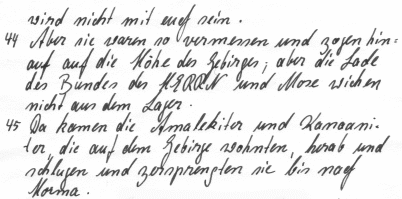 wird nicht mit euch sein.
44 Aber sie waren so vermessen und zogen hin-
auf auf die Höhe des Gebirges; aber die Lade
des Bundes des HERRN und Mose wichen
nicht aus dem Lager.
45 Da kamen die Amalekiter und Kanaani-
ter, die auf dem Gebirge wohnten, herab und
schlugen und zersprengten sie bis nach
Horma.